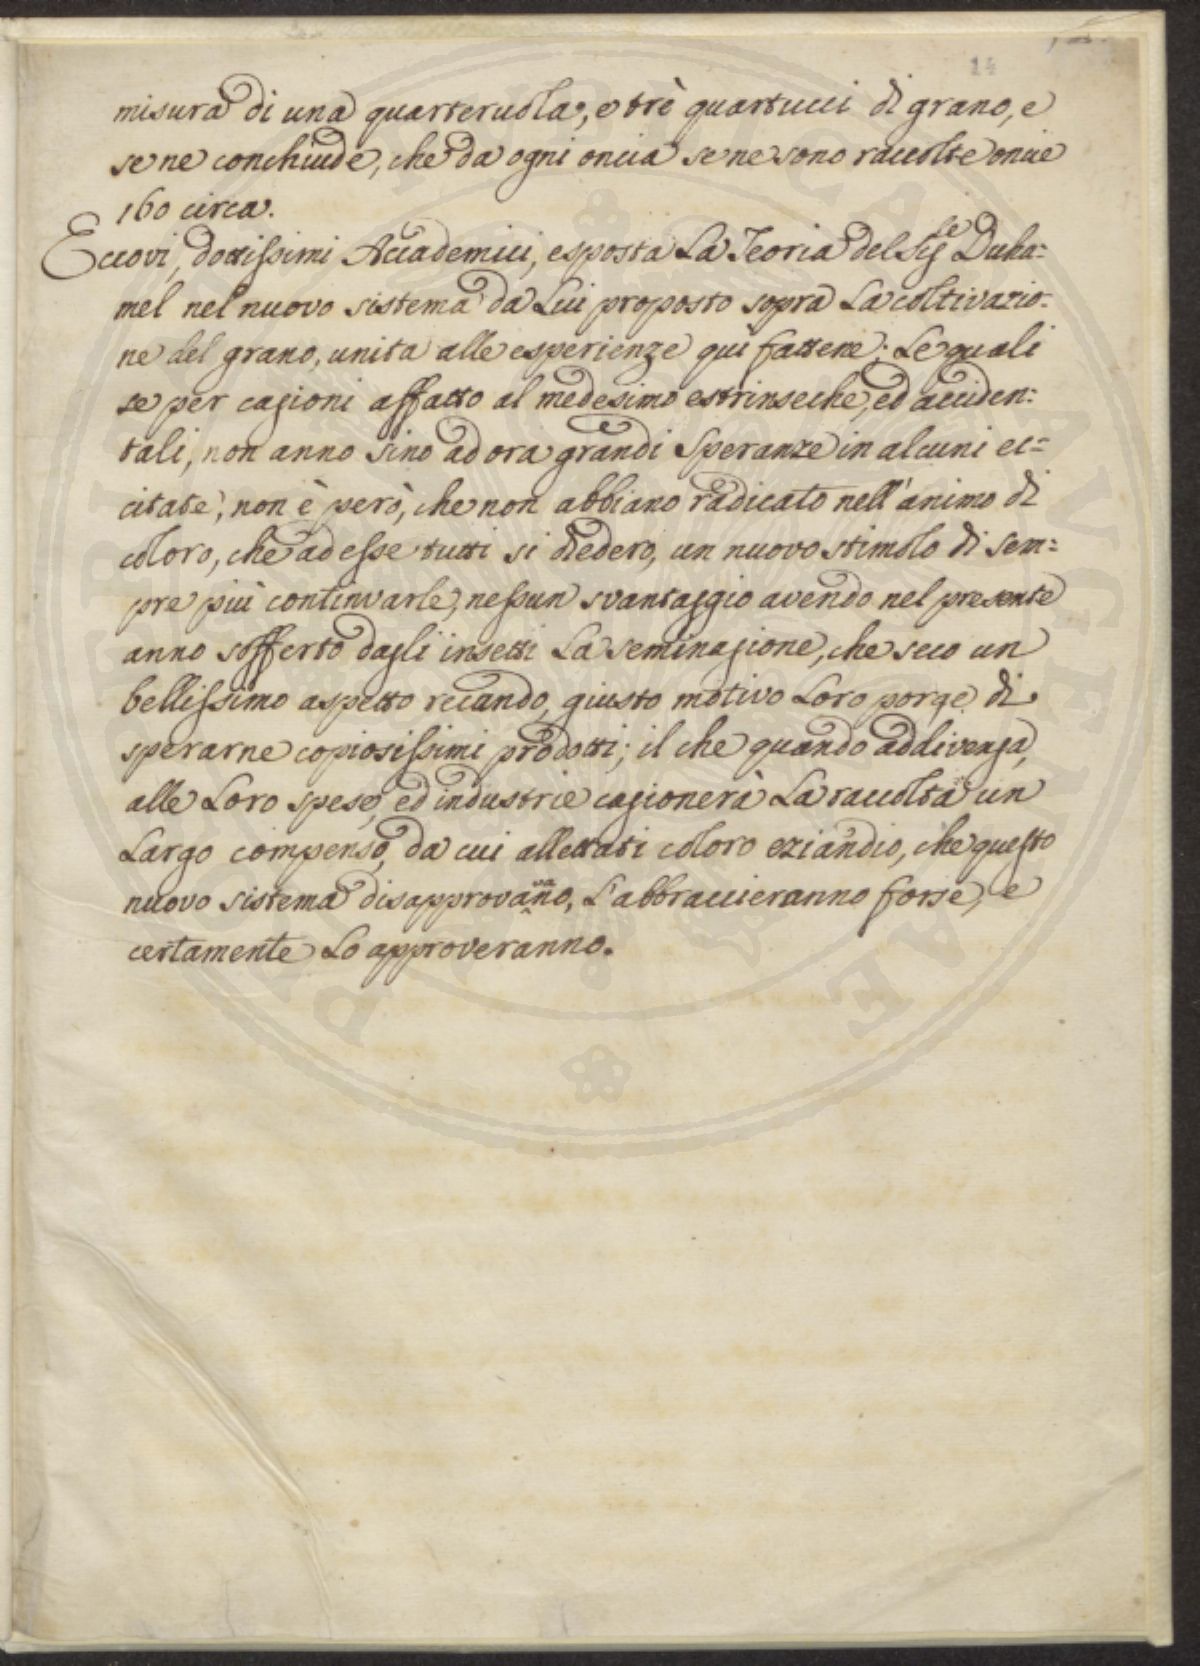 14
misura di una quarteruola, e trè quartucci di grano, e
se ne conchiude, che da ogni oncia se ne sono raccolte oncie
160 circa.
Eccovi, dottissimi Accademici, esposta La Teoria del Sig.re Duha=
mel nel nuovo sistema da Lui proposto sopra La coltivazio=
ne del grano, unita alle esperienze qui fattene; Le quali
se per cagioni affatto al medesimo estrinseche, ed acciden=
tali, non anno sino ad ora grandi Speranze in alcuni ec=
citate, non è però, che non abbiano radicato nell'animo di
coloro, che ad esse tutti si diedero, un nuovo stimolo di sem=
pre più continvarle, nessun svantaggio avendo nel presente
anno sofferto dagli insetti La seminagione, che seco un
bellissimo aspetto recando, giusto motivo Loro porge di
sperarne copiosissimi prodotti; il che quando addivenga,
alle Loro spese, ed industrie cagionerà La raccolta un
Largo compenso, da cui allettati coloro eziandio, che questo
nuovo sistema disapprovavano, L'abbraccieranno forse, e
certamente Lo approveranno.